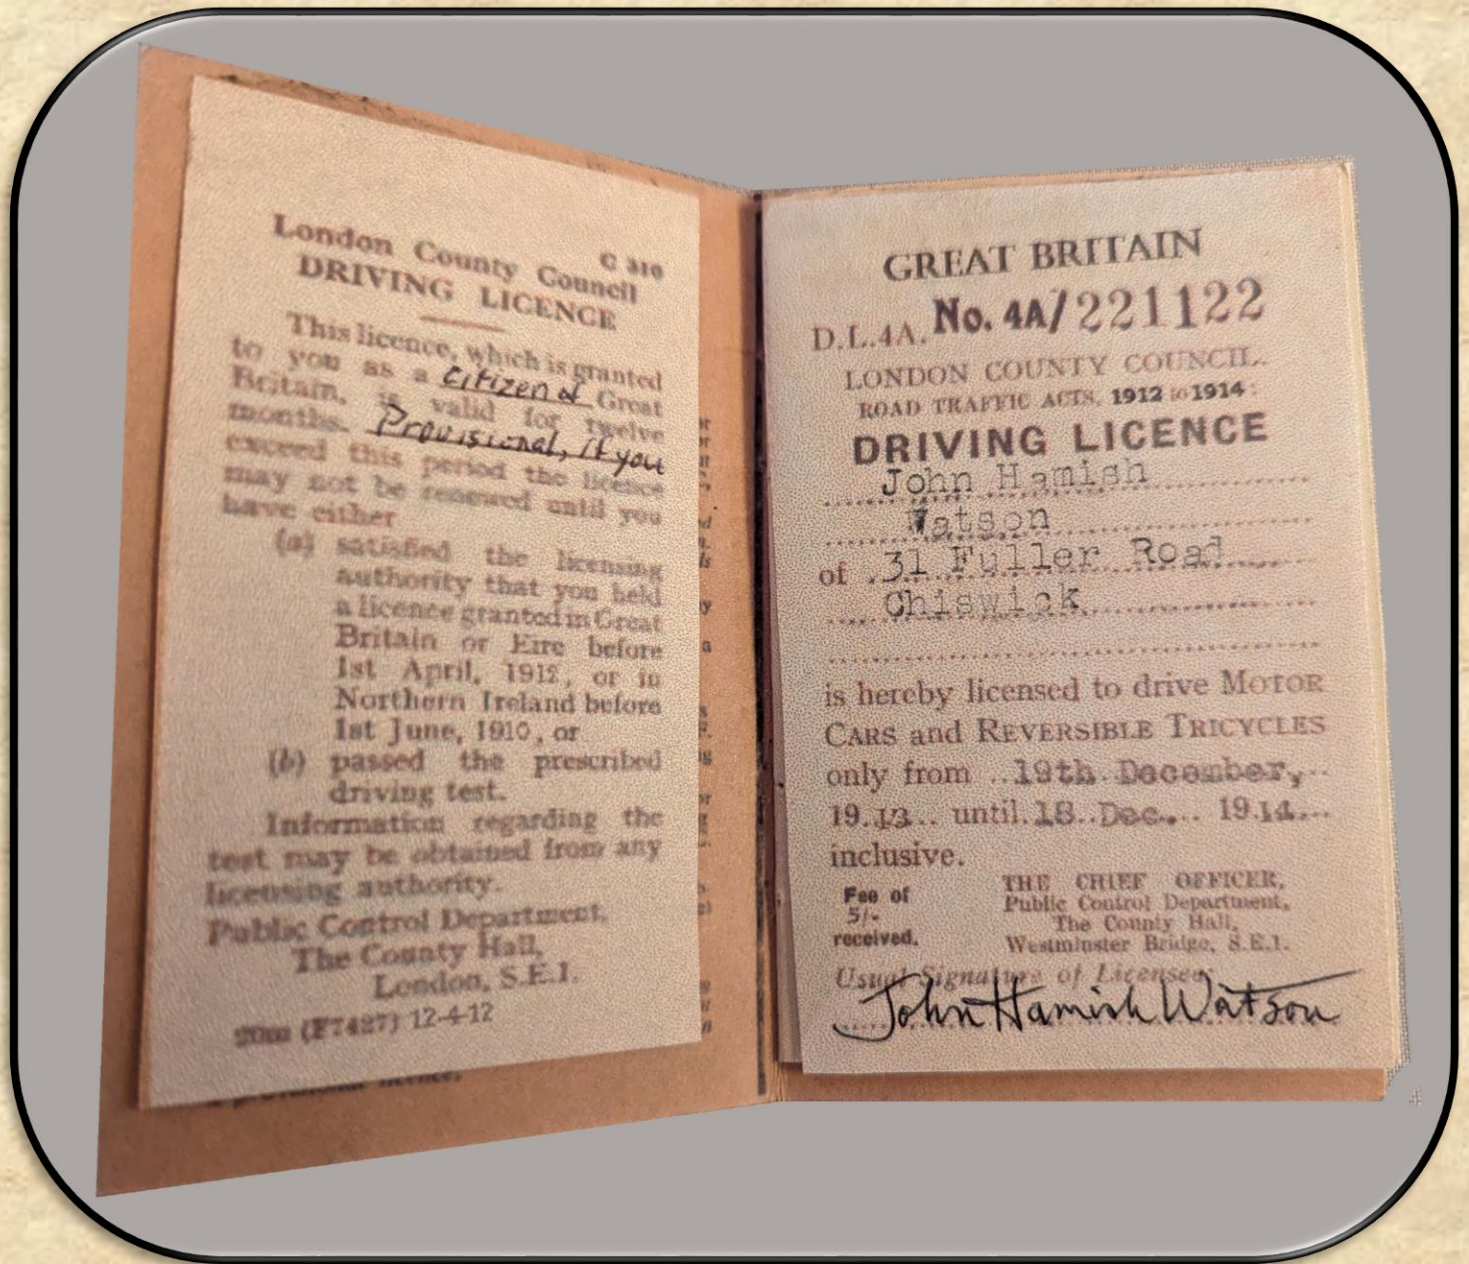 London County Council
C 310
DRIVING LICENCE
This licence, which is granted
to you as a citizen of Great
Britain, is valid for twelve
months. Provisional, if you
exceed this period the licence
may not be renewed until you
have either
(a) satisfied the licensing
authority that you held
a licence granted in Great
Britain or Eire before
1st April, 1912, or in
Northern Ireland before
1st June, 1910, or
(b) passed the prescribed
driving test.
Information regarding the
test may be obtained from any
licensing authority.
Public Control Department,
The County Hall,
London, S.E.1.
(F7427) 12-4-12
GREAT BRITAIN
D.L.4A. No. 4A/221122
LONDON COUNTY COUNCIL.
ROAD TRAFFIC ACTS, 1912 to 1914:
DRIVING LICENCE
John Hamish
Watson
of 31 Fuller Road
Chiswick
is hereby licensed to drive MOTOR
CARS and REVERSIBLE TRICYCLES
only from 19th December,
1913 until 18 Dec. 1914
inclusive.
Fee of
5/-
received.
THE CHIEF OFFICER,
Public Control Department,
The County Hall,
Westminster Bridge, S.E.1.
Usual Signature of Licensee:
John Hamish Watson